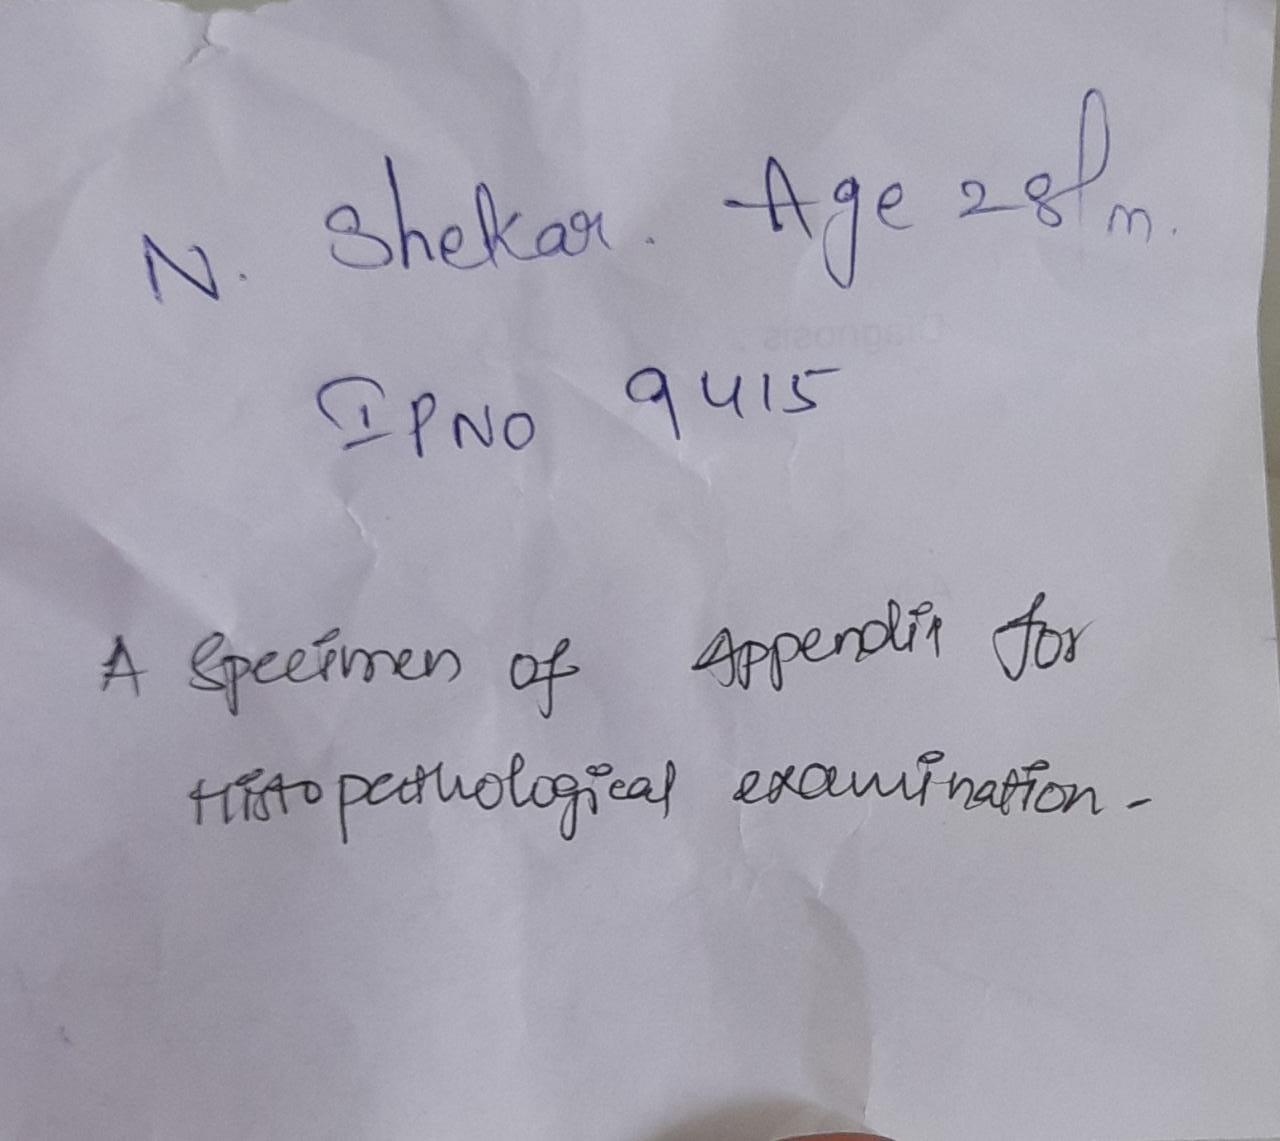 N. Shekar. Age 28/m.
IPNO 9415
A Specimen of Appendix for
Histopathological examination-